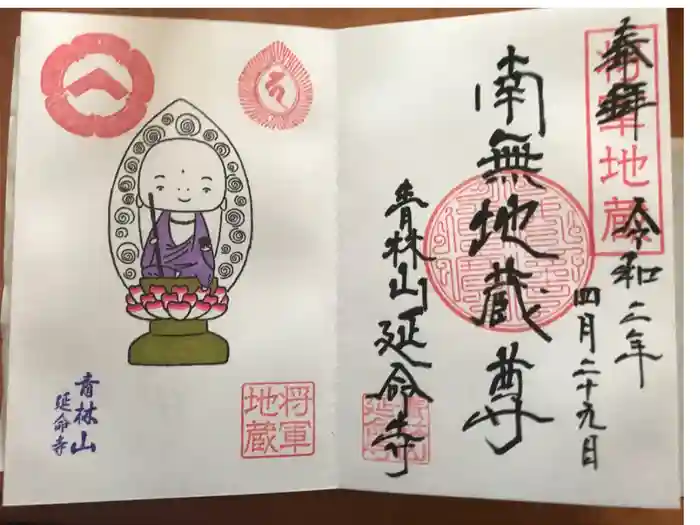 奉拝
将軍地蔵
令和二年
四月二十九日
南無地蔵尊
青林山延命寺
将軍
地蔵
青林山
延命寺